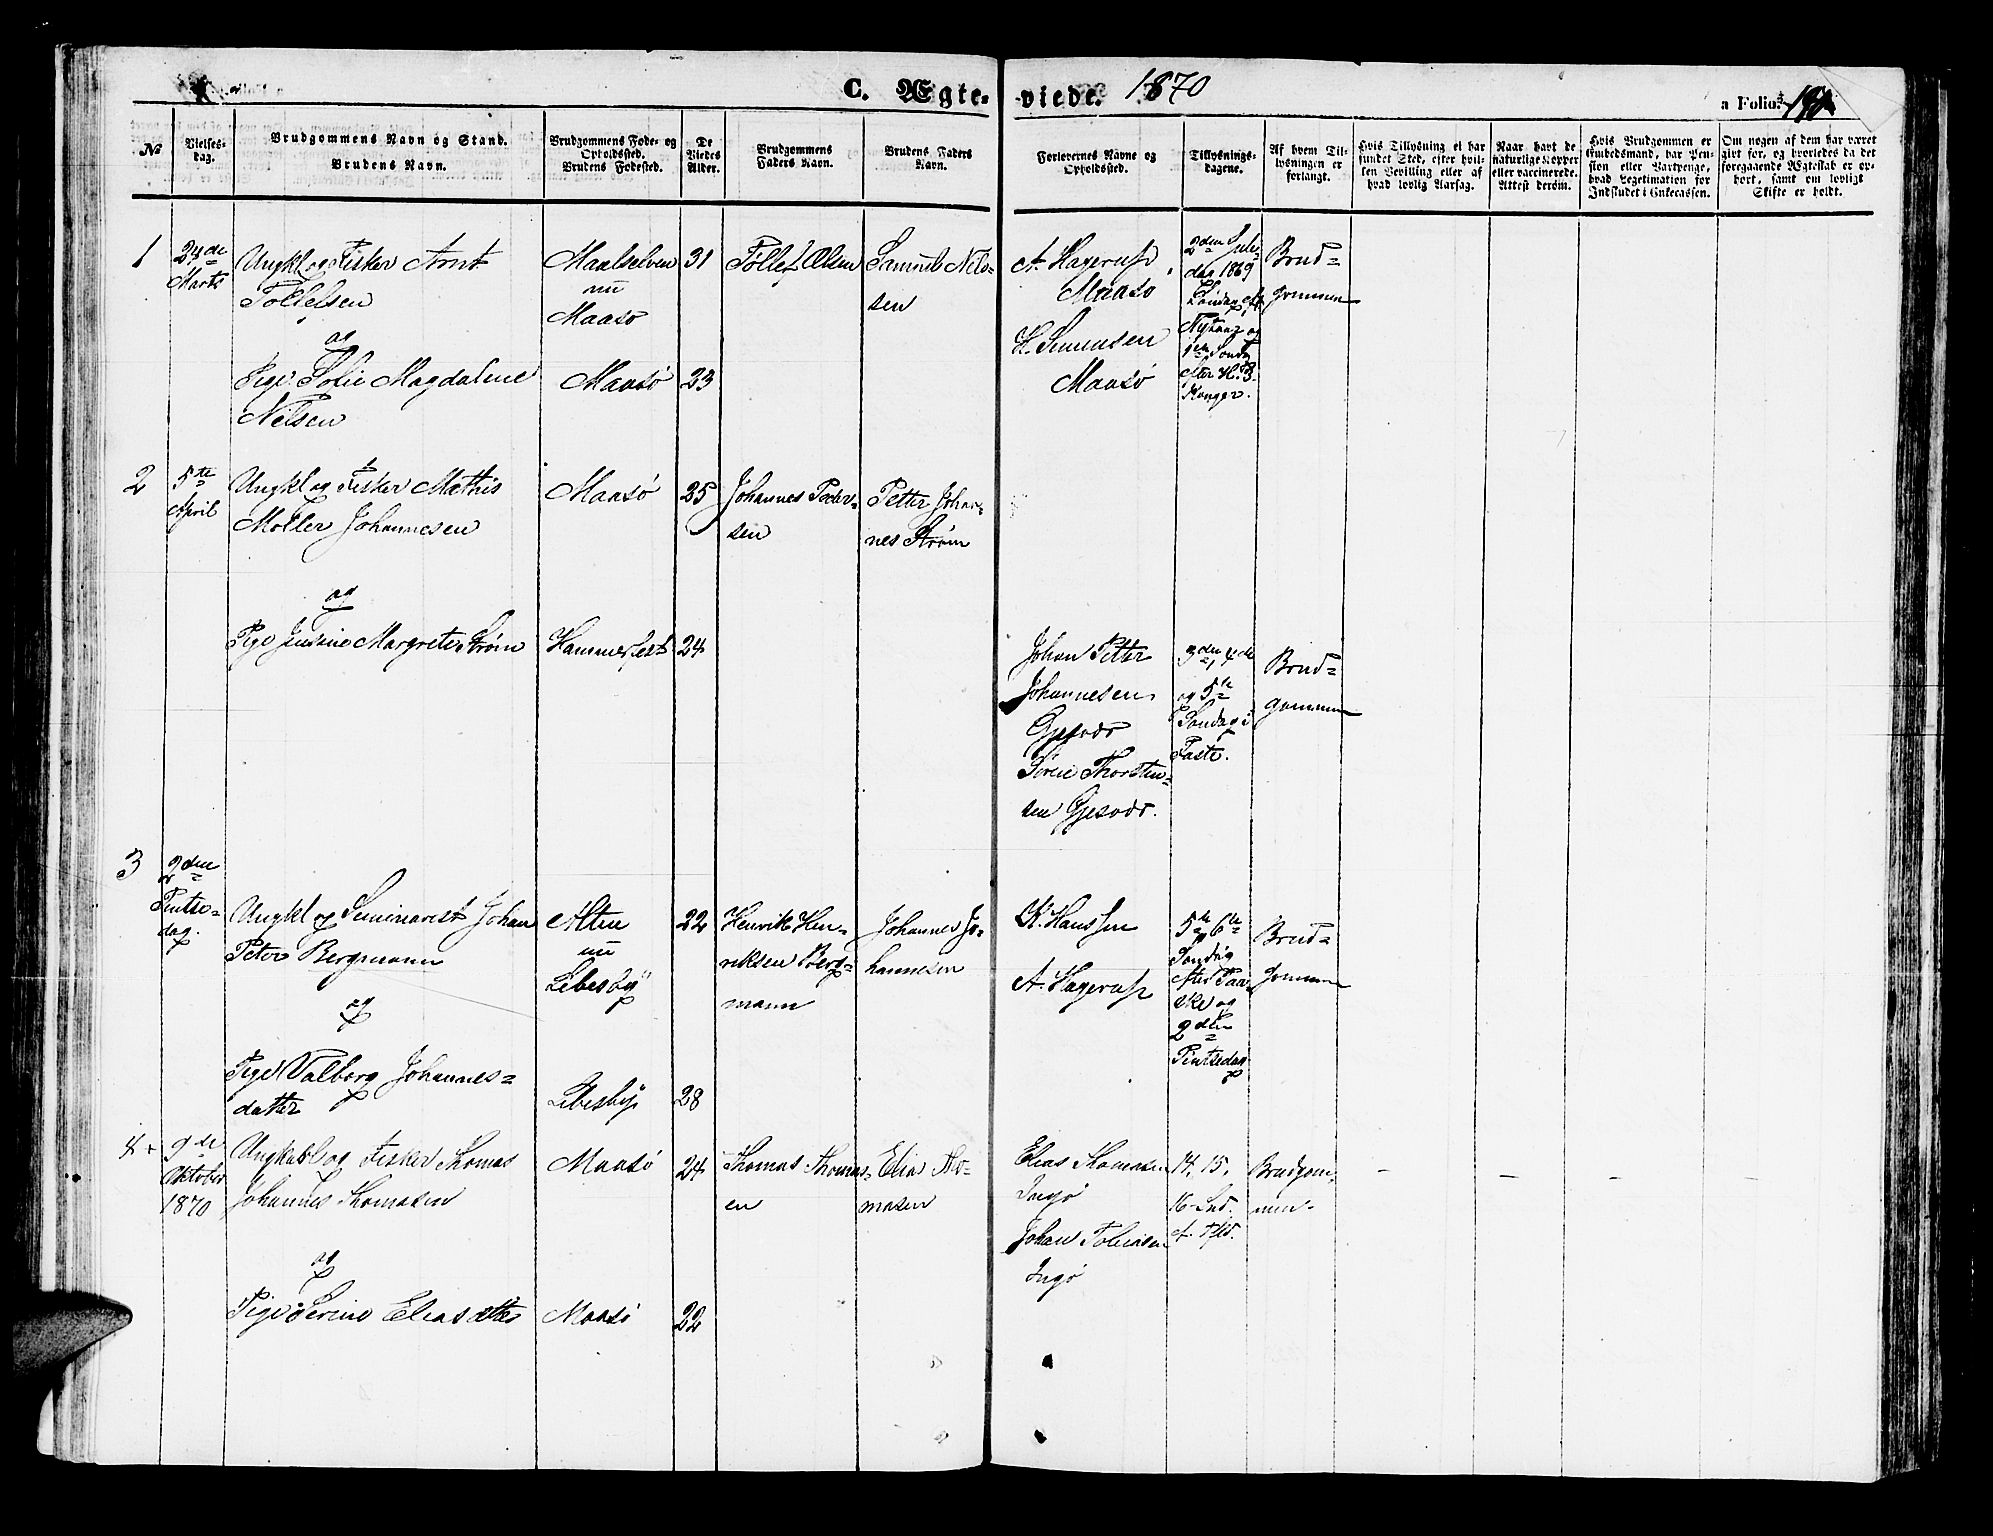 C. Ægte-
viede. 1870
a Folio.
№
Vielses-
dag.
Brudgommens Navn og Stand.
Brudens Navn.
Brudgommens Føde- og
Opholdssted.
Brudens Fødested.
De
Viedes
Alder.
Brudgommens
Faders Navn.
Brudens Faders
Navn.
Forlovernes Navne og
Opholdssted.
Tillysnings-
dagene.
Af hvem Til-
lysningen er
forlangt.
Hvis Tillysning ei har
fundet Sted, efter hvil-
ken Bevilling eller af
hvad lovlig Aarsag.
Naar havt de
naturlige Kopper
eller vaccinerede.
Attest derom.
Hvis Brudgommen er
Embedsmand, har Pen-
sion eller Vartpenge,
hvad Legitimation for
Indskudet i Enkecassen.
Om nogen af dem har været
gift før, og hvorledes da det
foregaaende Ægteskab er op-
hørt, samt om lovligt
Skifte er holdt.
1
24de
Marts
Ungkl og Fisker Arnt
Tollefsen
og
Pige Sofie Magdalene
Nilsen
Maalselven
nu
Maasø
Maasø
31
23
Tollef Olsen
Samuel Nil-
sen
A. Hagerup
Maasø
H. Simensen
Maasø
2den Jule-
dag 1869
Søndag eft
Nytaar og
1ste Sønd
efter H. 3
Konger.
Brud-
gommen
2
5te
April
Ungkl og Fisker Mathis
Møller Johannesen
og
Pige Jensine Margrete Strøm
Maasø
Hammerfest
25
24
Johannes Peder-
sen
Petter Johan-
nes Strøm
Johan Petter
Johannesen
Gjesvær
Søren Thorsten-
sen Gjesvær.
3den, 4de
og 5te
Søndag i
Faste.
Brud-
gommen
3
2den
Pintse-
dag.
Ungkl og Seminarist Johan
Peter Bergmann
og
Pige Valborg Johannes-
datter
Alten
nu
Lebesby
Lebesby
22
28
Henrik Hen-
riksen Berg-
mann
Johannes Jo-
hannesen
K. Hanssen
A. Hagerup
5te 6te
Søndag
efter Paa-
ske og
2den
Pintsedag
Brud-
gommen
4
9de
Oktober
1870
Ungkarl og Fisker Thomas
Johannes Thomasen
og
Pige Serine Eliasdatter
Maasø
Maasø
24
22
Thomas Thomas-
en
Elias Tho-
masen
Elias Thomasen
Ingø
Johan Tobiasen
Ingø
14. 15.
16. Snd.
Brudgom-
men.